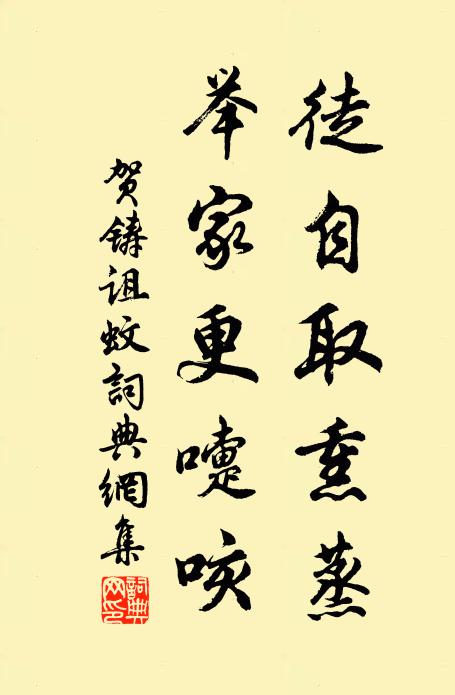 徒自取熏蒸
举家更嚏咳
贺铸诅蚊詞典網集
詞典网印